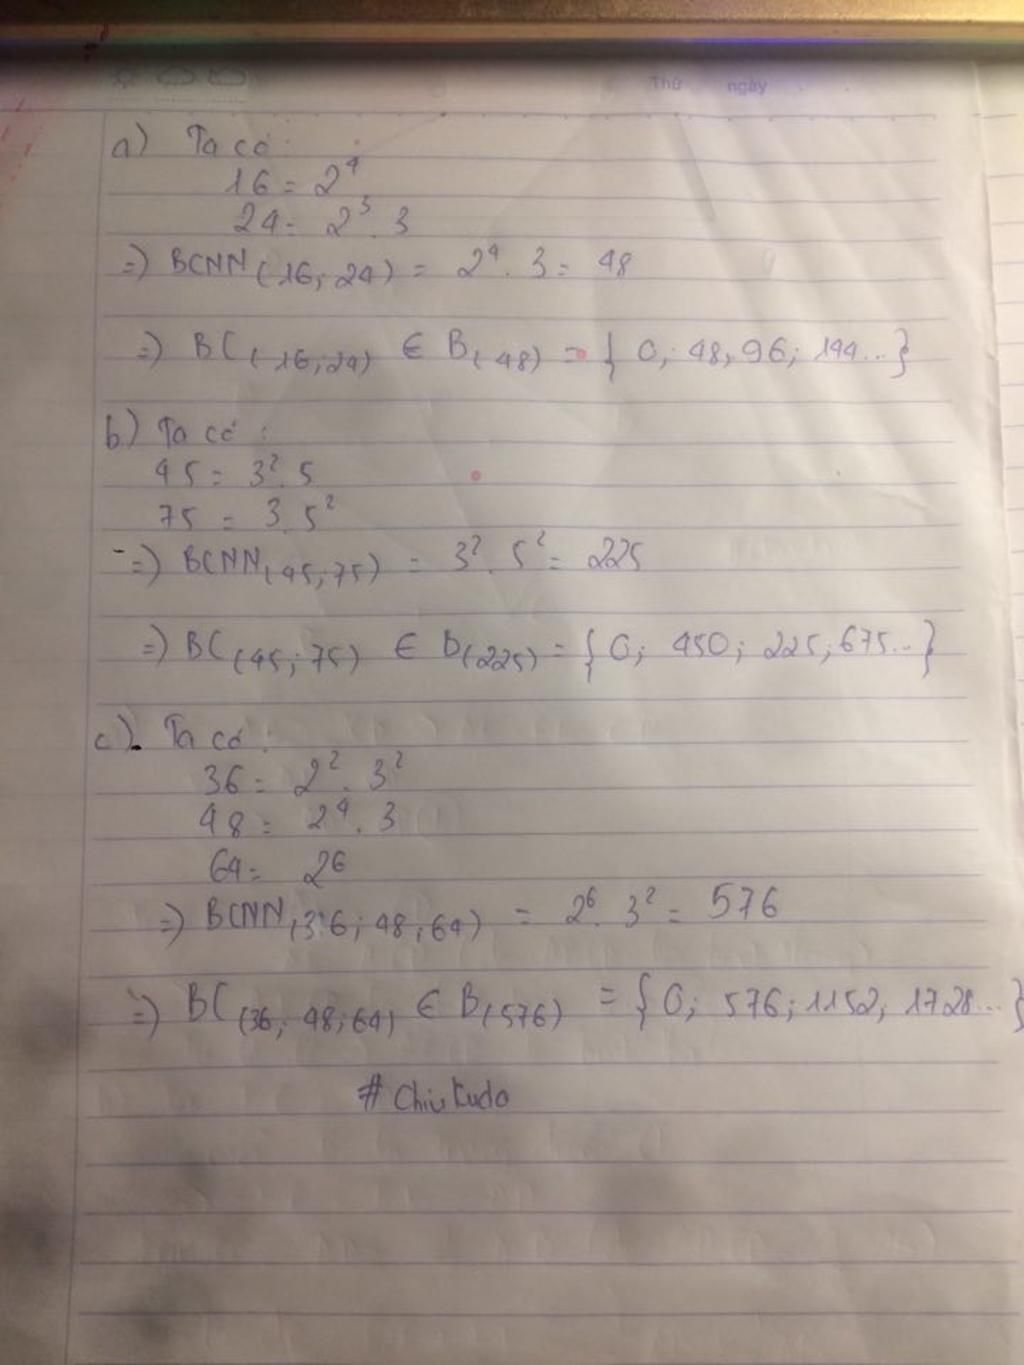 Thứ ngày
a) Ta có:
16 = 2⁴
24 = 2³. 3
=) BCNN(16; 24) = 2⁴. 3 = 48
=) BC(16; 24) ∈ B(48) = { 0; 48, 96; 144... }
b) Ta có:
45 = 3². 5
75 = 3. 5²
=) BCNN(45; 75) = 3². 5² = 225
=) BC(45; 75) ∈ B(225) = { 0; 450; 225, 675... }
c). Ta có:
36 = 2². 3²
48 = 2⁴. 3
64 = 2⁶
=) BCNN(36; 48; 64) = 2⁶. 3² = 576
=) BC(36; 48; 64) ∈ B(576) = { 0; 576; 1152, 1728... }
# Chiukudo